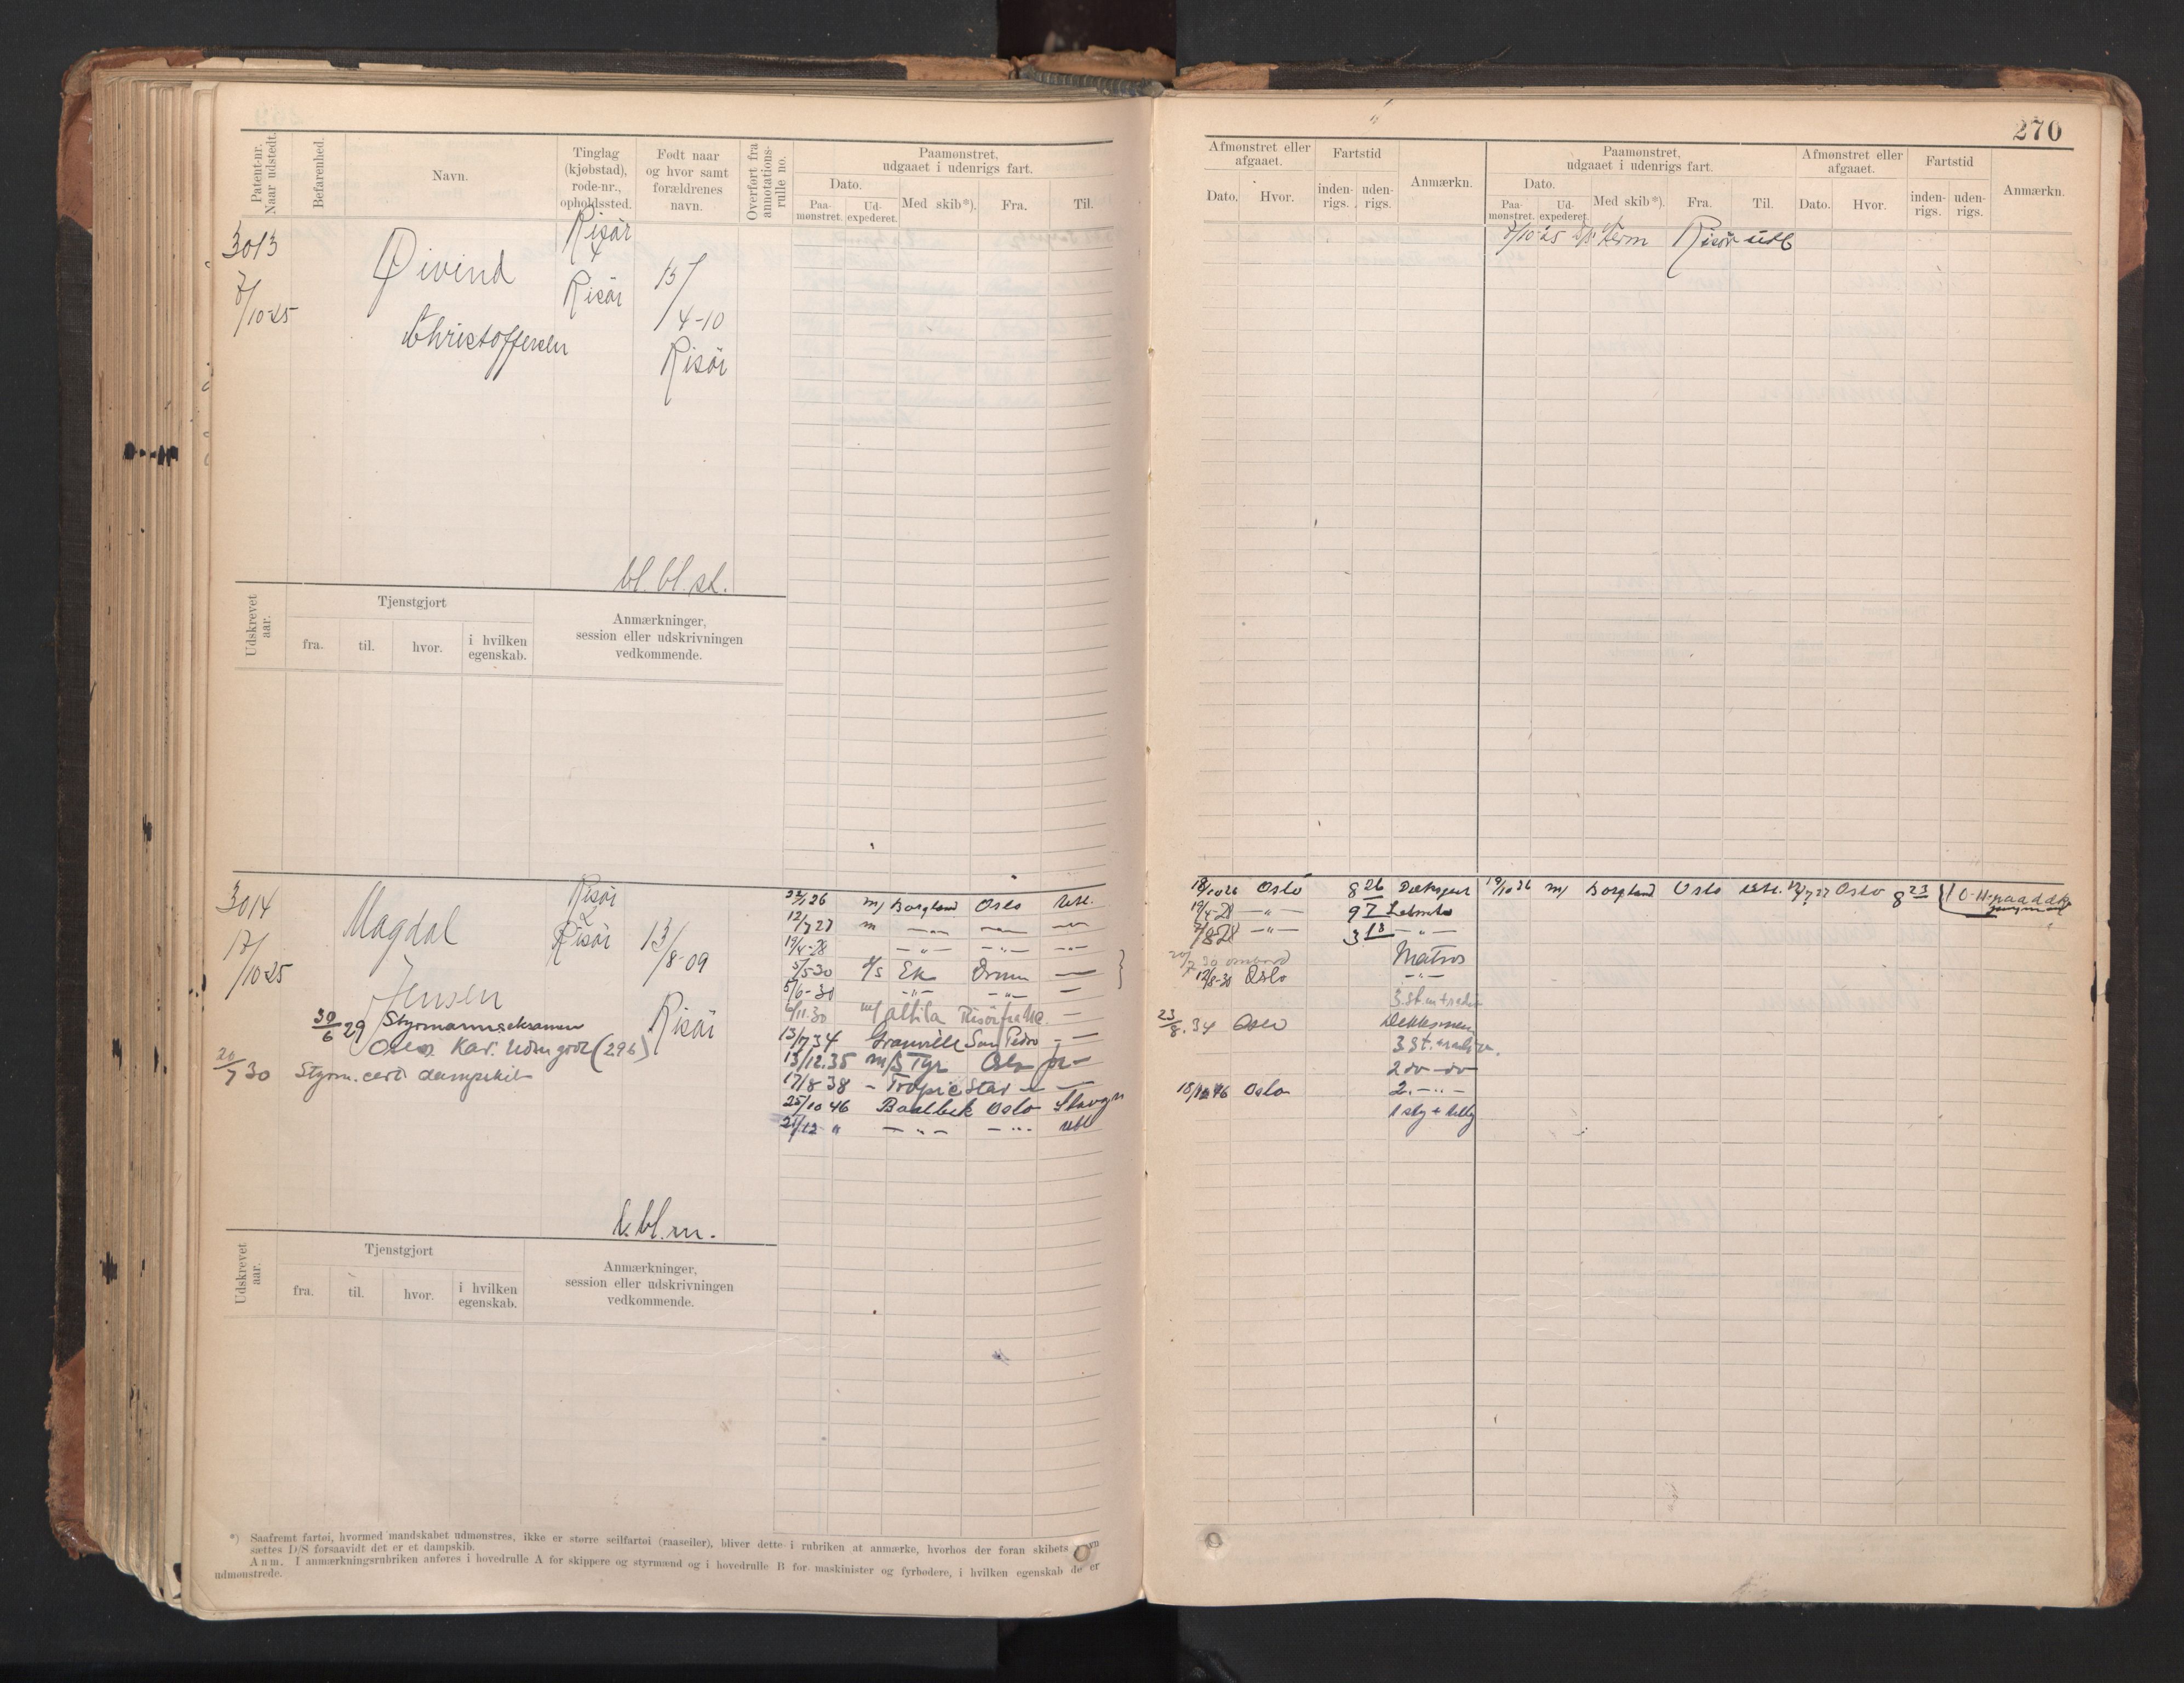 270
Patent-nr. Naar udstedt.
Befarenhed.
Navn.
Tinglag (kjøbstad), rode-nr., opholdssted.
Født naar og hvor samt forældrenes navn.
Overført fra annotationsrulle no.
Paamønstret, udgaaet i udenrigs fart.
Dato.
Paamønstret.
Udexpederet.
Med skib*).
Fra.
Til.
Afmønstret eller afgaaet.
Dato.
Hvor.
Fartstid
indenrigs.
udenrigs.
Anmærkn.
Paamønstret, udgaaet i udenrigs fart.
Dato.
Paamønstret.
Udexpederet.
Med skib*).
Fra.
Til.
Afmønstret eller afgaaet.
Dato.
Hvor.
Fartstid
indenrigs.
udenrigs.
Anmærkn.
3013
7/10-25
Øivind
Christoffersen
Risør
Risør
15/4-10
Risør
7/10-25 Risør utl
bl. bl. st.
Udskrevet aar.
Tjenstgjort
fra. til. hvor. i hvilken egenskab.
Anmærkninger, session eller udskrivningen vedkommende.
3014
17/10-25
Magdal
Jensen
Risør
2
Risør
13/8-09
Risør
30/6 29 Styrmannseksamen
Oslo Kar. (296)
20/7 30 Styrm. cert dampskib
m/ Borgland Oslo utl.
12/7 27 m —"— —"— —"—
19/4-28 —"— —"— —"—
5/5-30 s/s Ek —
5/6-30 —"— —"— —
6/11.30 m/ Attila Risør —
13/7 34 Granville San Pedro —
13/12.35 m/s Tyr Oslo
17/8 38 — Tropic Star — —
25/10 46 Baalbek Oslo
21/12 " —"— —"— utl
18/10 26 Oslo 8 26
19/4-28 —"— 9 7
7/8 28 —"— 3 18 —"—
20/7 30 ombord Matros
12/8-30 Oslo —"—
23/8.34 Oslo Dekksmann
3 st.
2 do —do
18/12 46 Oslo 2. —"—
19/10 26 m/ Borgland Oslo utl. 12/7 27 Oslo 8 23
k. bl. m.
Udskrevet aar.
Tjenstgjort
fra. til. hvor. i hvilken egenskab.
Anmærkninger, session eller udskrivningen vedkommende.
*) Saafremt fartøi, hvormed mandskabet udmønstres, ikke er større seilfartøi (raaseiler), bliver dette i rubriken at anmærke, hvorhos der foran skibets navn
sættes D/S forsaavidt det er et dampskib.
Anm. I anmærkningsrubriken anføres i hovedrulle A for skippere og styrmænd og i hovedrulle B for maskinister og fyrbødere, i hvilken egenskab de er
udmønstrede.